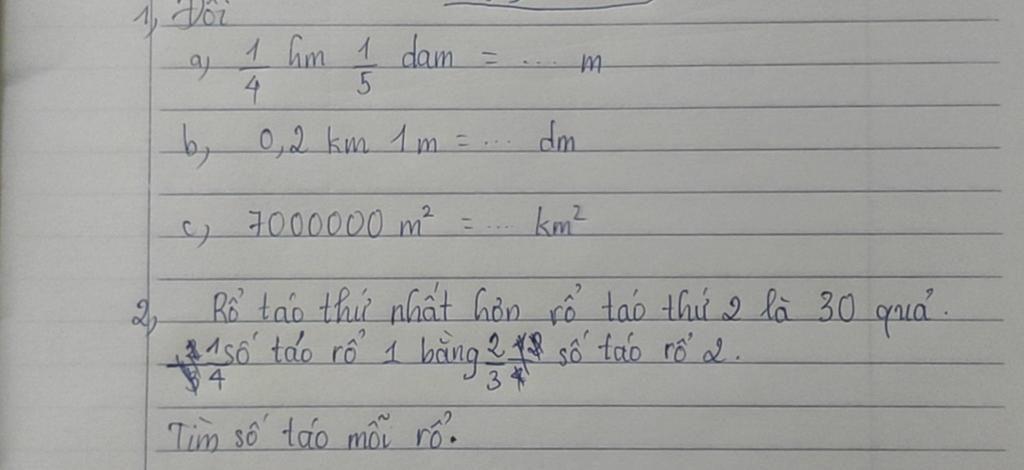 1, Đổi
a, 1/4 hm 1/5 dam = ... m
b, 0,2 km 1m = ... dm
c, 7000000 m² = ... km²
2, Rổ táo thứ nhất hơn rổ táo thứ 2 là 30 quả.
1/4 số táo rổ 1 bằng 2/3 số táo rổ 2.
Tìm số táo mỗi rổ.